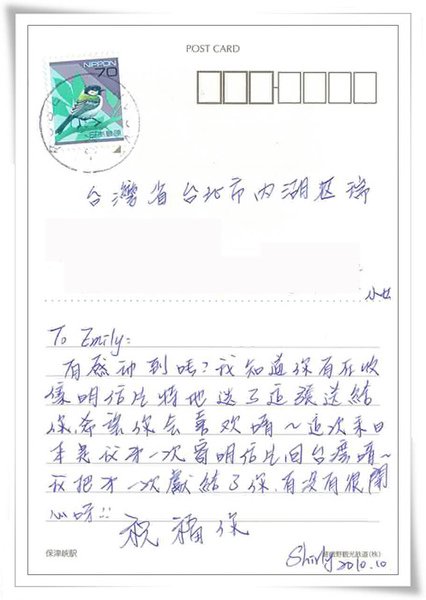 POST CARD
NIPPON
70
日本郵便
台灣省台北市内湖区瑞
小姐
To Emily:
有感动到嗎?我知道你有在收
集明信片特地选了這張送給
你希望你会喜欢唷~這次來日
本是我第一次寄明信片回台灣唷~
我把第一次獻給了你,有沒有很開
心呀!!
祝福你
保津峡駅
野観光鉄道(株)
Shirly 2010.10